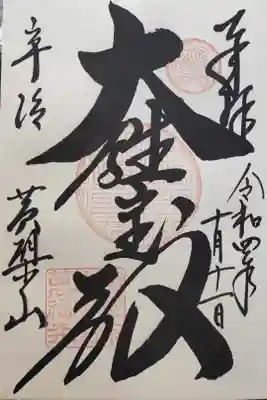 奉拝
令和四年
十月十一日
大雄宝殿
宇治
黄檗山